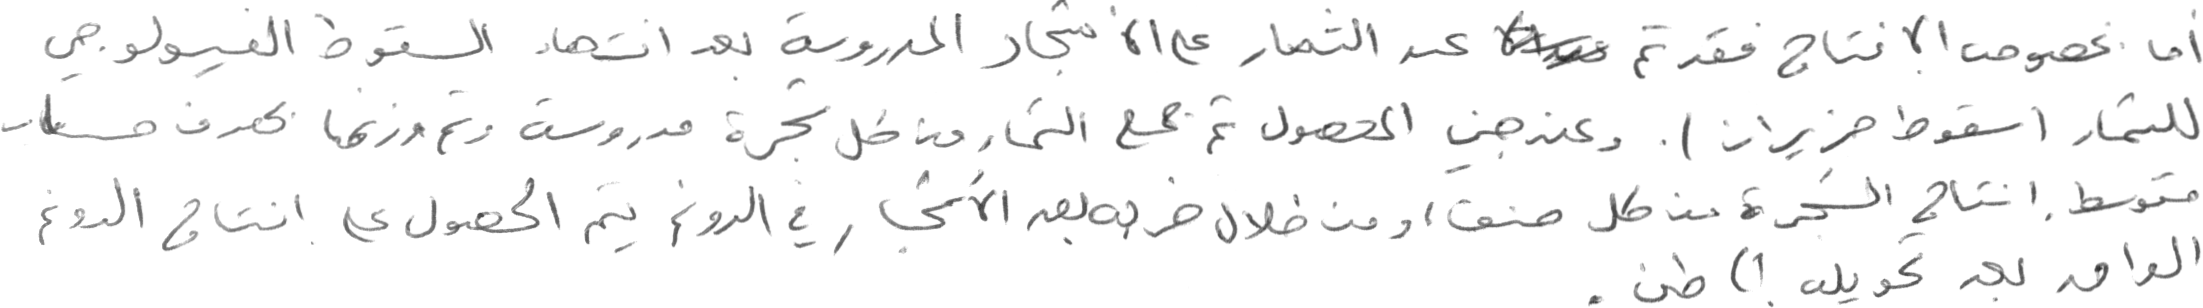 أما بخصوص الإنتاج فقد تم عد الثمار على الأشجار المدروسة بعد انتهاء السقوط الفسيولوجي
للثمار (سقوط حزيران). وعند جني المحصول تم جمع الثمار من كل شجرة مدروسة وتم وزنها بهدف حساب
متوسط إنتاج الشجرة من كل صنف، ومن خلال ضربه بعدد الأشجار في الدونم يتم الحصول على إنتاج الدونم
الواحد بعد تحويله إلى طن.